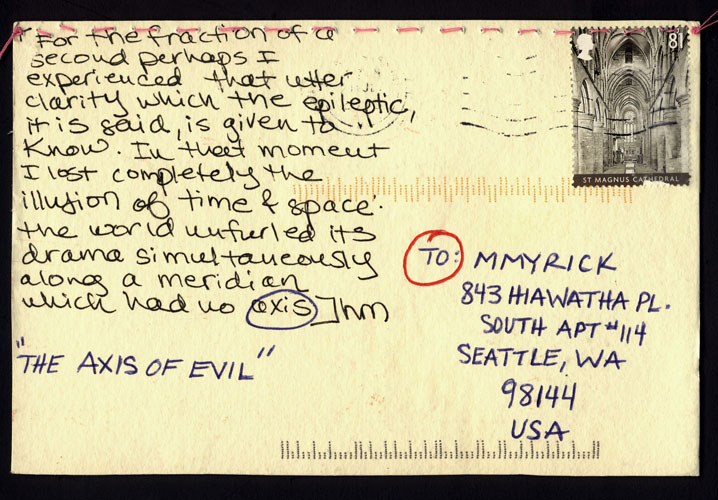 For the fraction of a
second perhaps I
experienced that utter
clarity which the epileptic,
it is said, is given to
know. In that moment
I lost completely the
illusion of time & space:
the world unfurled its
drama simultaneously
along a meridian
which had no axis]hm
"THE AXIS OF EVIL"
8
ST MAGNUS CATHEDRAL
TO: MMYRICK
843 HIAWATHA PL.
SOUTH APT #114
SEATTLE, WA
98144
USA